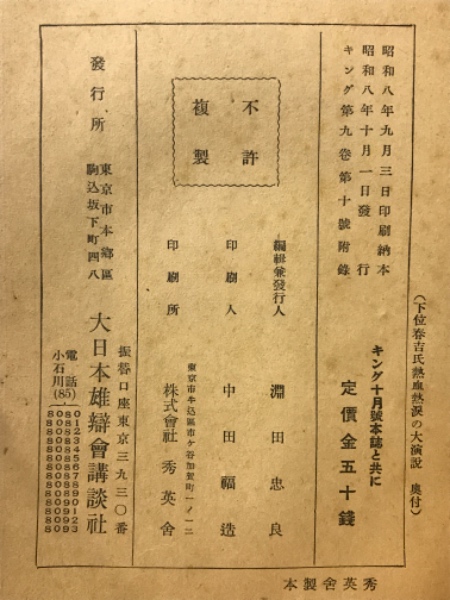 （下位春吉氏熱血熱涙の大演説　奥付）
昭和八年九月三日印刷納本
昭和八年十月一日發行
キング第九卷第十號附錄
キング十月號本誌と共に
定價金五十錢
不許
複製
編輯兼發行人　淵田忠良
印刷人　中田福造
東京市牛込區市ケ谷加賀町一ノ一二
印刷所　株式會社　秀英舍
發行所
東京市本鄉區
駒込坂下町四八
大日本雄辯會講談社
振替口座東京三九三〇番
電話
小石川(85)
秀英舍製本